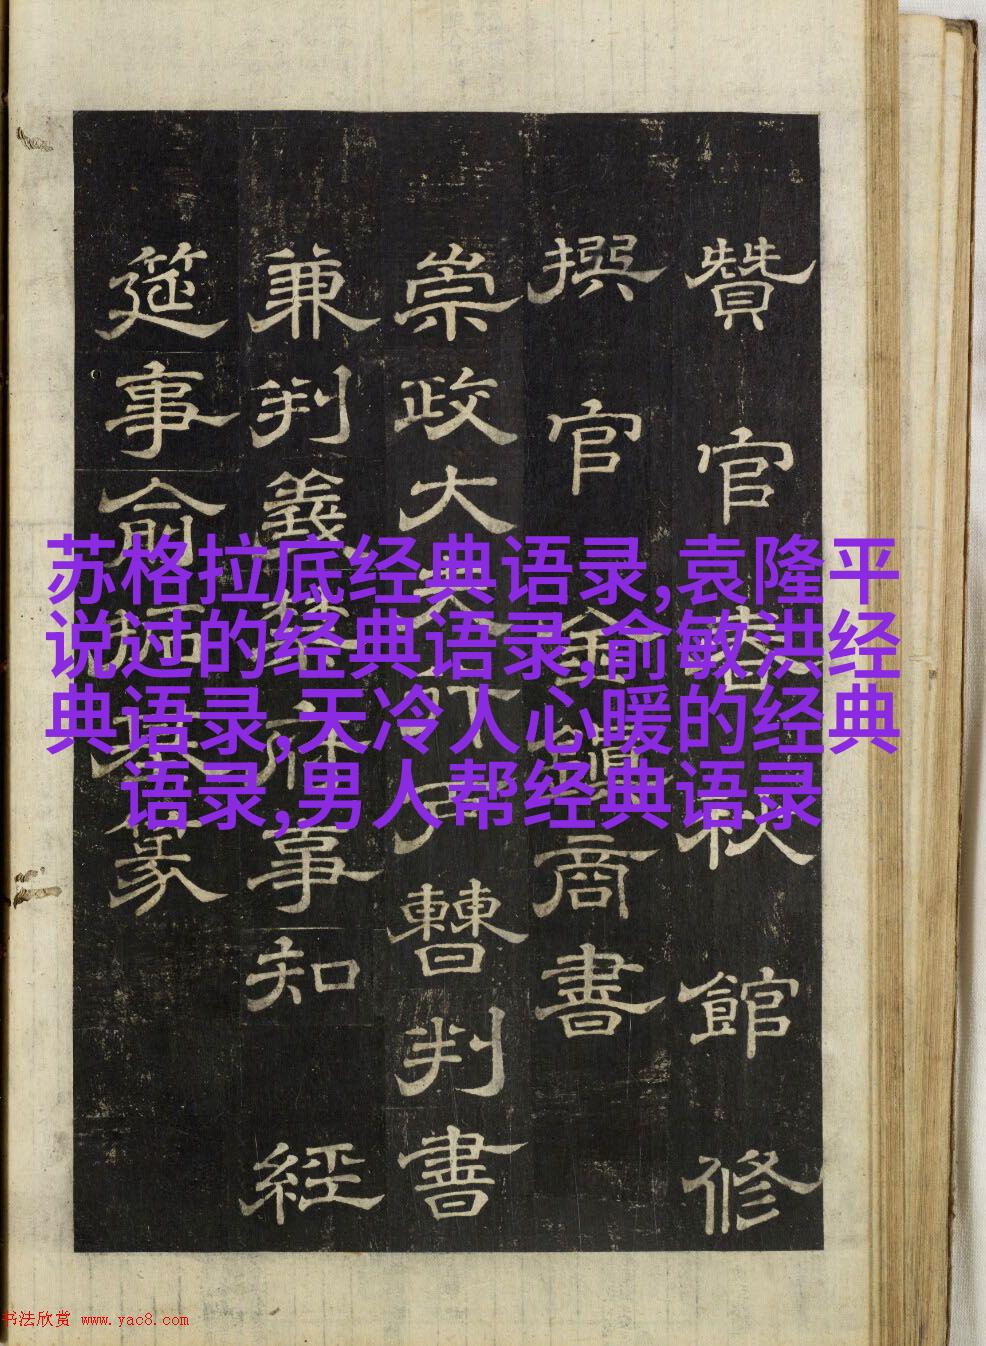 贊官春秋館修
撰官金商書
崇政大夫行戶曹判書
兼判義禁府事知經
筵事俞拓基篆
苏格拉底经典语录,袁隆平
说过的经典语录,俞敏洪经
典语录,天冷人心暖的经典
语录,男人帮经典语录
书法欣赏 www.yac8.com